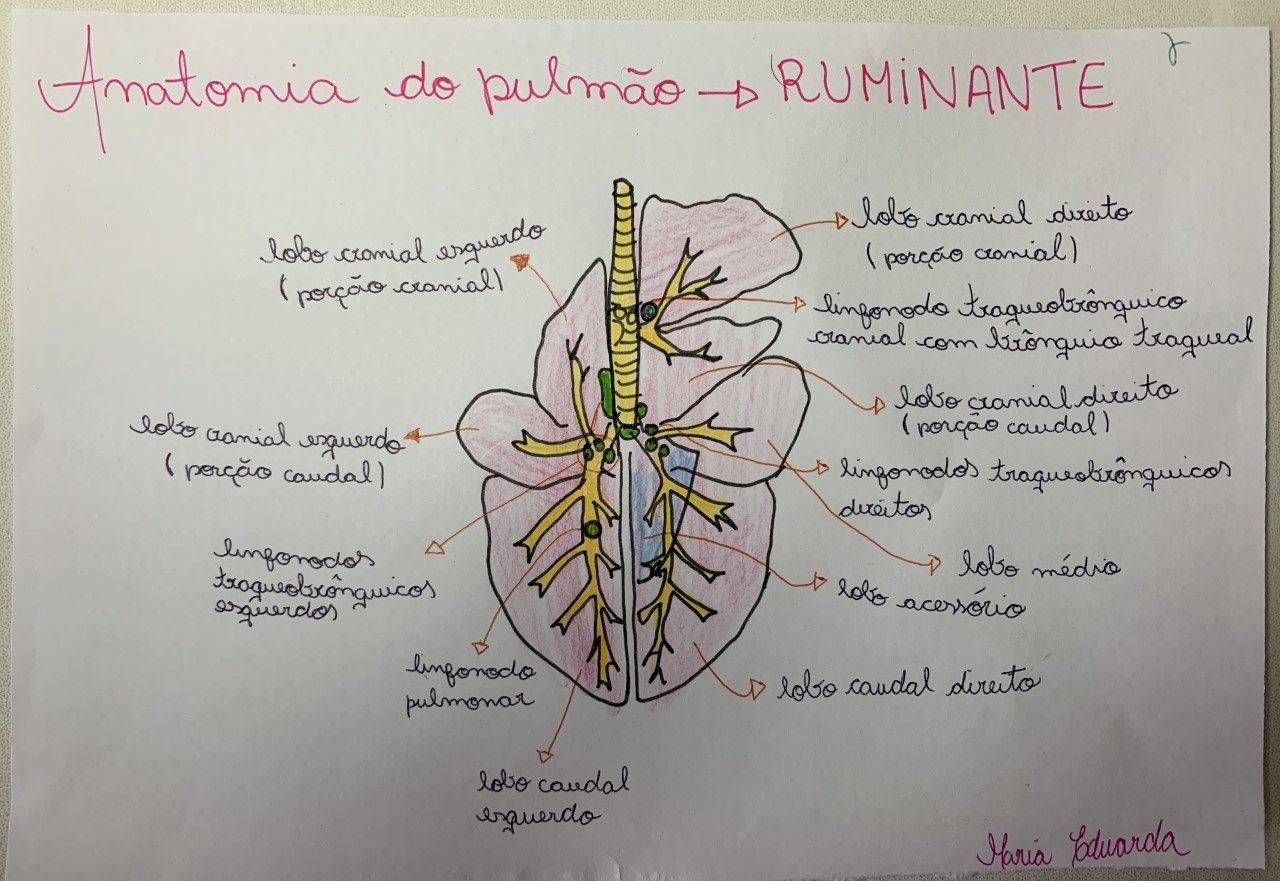 Anatomia do pulmão → RUMINANTE
lobo cranial esquerdo
(porção cranial)
lobo cranial direito
(porção cranial)
linfonodo traqueobrônquico
cranial com brônquio traqueal
lobo cranial direito
(porção caudal)
lobo cranial esquerdo
(porção caudal)
linfonodos traqueobrônquicos
direitos
linfonodos
traqueobrônquicos
esquerdos
lobo médio
lobo acessório
linfonodo
pulmonar
lobo caudal direito
lobo caudal
esquerdo
Maria Eduarda